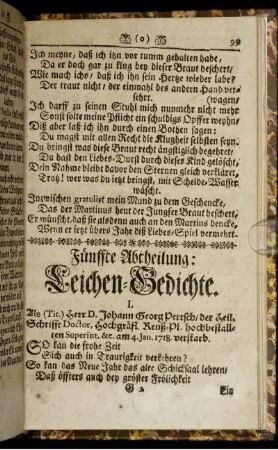 (o) 99
Ich meyne, daß ich ihn vor tumm gehalten habe,
Da er doch gar zu klug bey dieser Braut beschert/
Wie mach ichs/ daß ich ihn sein Hertze wieder labe?
Der traut nicht/ der einmahl des andern Hand ver-
sehrt. (wagen/
Ich darff zu seinen Stuhl mich nunmehr nicht mehr
Sonst solte meine Pflicht ein schuldigs Opffer weyhn/
Diß aber laß ich ihn durch einen Bothen sagen:
Du magst mit allen Recht die Klugheit selbsten seyn.
Du bringst was diese Braut recht ängstiglich begehret/
Du hast den Liebes-Durst durch dieses Kind gelöscht,
Dein Nahme bleibt davor den Sternen gleich verkläret,
Trotz! wer was du jetzt bringst, mit Scheide-Wasser
wäscht.
Inzwischen gratulirt mein Mund zu dem Geschencke,
Das der Martinus heut der Jungfer Braut beschert,
Er wünscht, daß sie alsdenn auch an den Martins dencke,
Wenn er jetzt übers Jahr diß Liebes-Spiel vermehrt.
Fünffte Abtheilung:
Leichen-Gedichte.
I.
Als (Tit.) Herr D. Johann Georg Pertsch/ der Heil.
Schrifft Doctor, Hochgräfl. Reuß-Pl. hochbestall-
ten Superint. &c. am 4. Jan. 1718. verstarb.
SO kan die frohe Zeit
Sich auch in Traurigkeit verkehren?
So kan das Neue Jahr das alte Schicksaal lehren/
Daß öffters auch dep gröster Frölichkeit
G 2 Ein